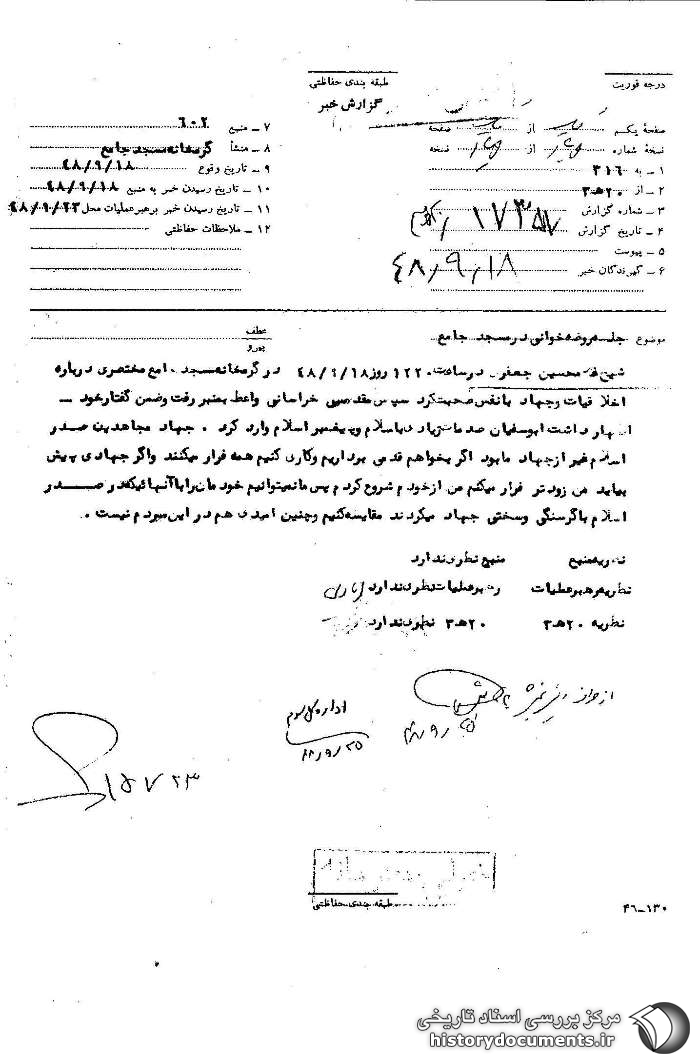 درجه فوریت
طبقه بندی حفاظتی
گزارش خبر
صفحهٔ یکم از صفحه
نسخهٔ شماره از نسخه
۱ – به ۳۱۶
۲ – از ۲۰ هـ ۳
۳ – شماره گزارش ۱۷۳۵۷
۴ – تاریخ گزارش ۴۸/۹/۱۸
۵ – پیوست
۶ – گیرندگان خبر
۷ – منبع ۶۰۲
۸ – منشأ گرمخانه مسجد جامع
۹ – تاریخ وقوع ۴۸/۹/۱۸
۱۰ – تاریخ رسیدن خبر به منبع ۴۸/۹/۱۸
۱۱ – تاریخ رسیدن خبر برهبر عملیات محل ۴۸/۹/۲۳
۱۲ – ملاحظات حفاظتی
موضوع جلسه روضه خوانی در مسجد جامع
عطف
پیرو
شیخ غلامحسین جعفری در ساعت ۱۲۲۰ روز ۴۸/۹/۱۸ در گرمخانه مسجد جامع مختصری درباره
اخلاقیات و جهاد با نفس صحبت کرد سپس مقدسی خراسانی واعظ بمنبر رفت و ضمن گفتار خود
اظهار داشت ابوسفیان صدمات زیادی باسلام و پیغمبر اسلام وارد کرد . جهاد مجاهدین صدر
اسلام غیر از جهاد ما بود اگر بخواهم قدمی برداریم و کاری کنیم همه فرار میکنند و اگر جهادی پیش
بیاید من زودتر فرار میکنم من از خودم شروع کردم پس ما نمیتوانیم خودمان را با آنهائیکه در صدر
اسلام با گرسنگی و سختی جهاد میکردند مقایسه کنیم و چنین امیدی هم در این مردم نیست .
نظریه منبع منبع نظری ندارد
نظریه رهبر عملیات رهبر عملیات نظری ندارد
نظریه ۲۰ هـ ۳ ۲۰ هـ ۳ نظری ندارد
اداره کل سوم
۴۸/۹/۲۵
۱۵۷۲۳
طبقه بندی حفاظتی
۴۶–۱۳۰
مرکز بررسی اسناد تاریخی
historydocuments.ir